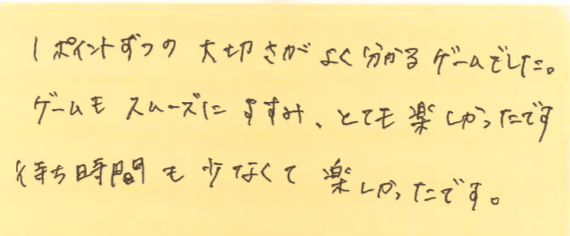 1ポイントずつの 大切さが よく分かる ゲームでした。
ゲームも スムーズに すすみ、とても楽しかったです
待ち時間も 少なくて 楽しかったです。